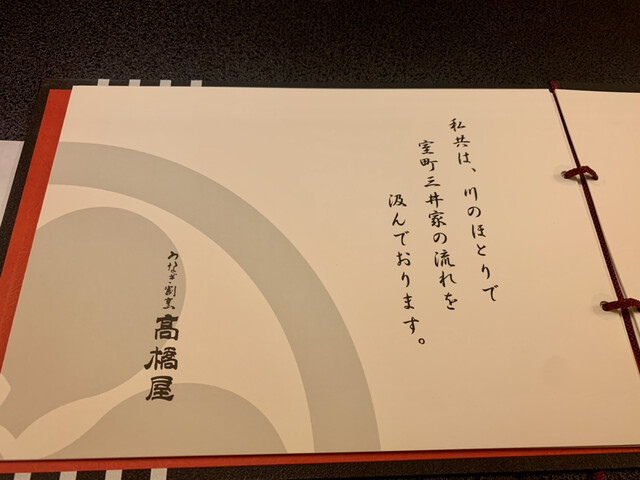 私共は、川のほとりで
室町三井家の流れを
汲んでおります。
うなぎ・割烹
髙橋屋